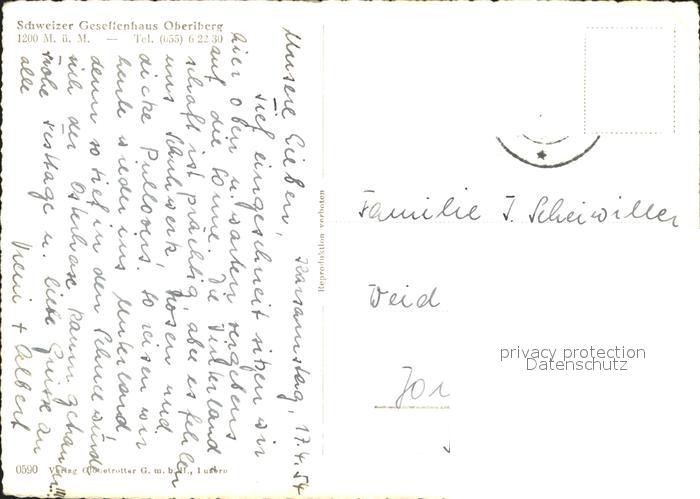 Schweizer Gesellenhaus Oberiberg
1200 M. ü. M. — Tel. (055) 6 22 30
Karsamstag, 17.4.54
Unsere Lieben,
Tief eingeschneit sitzen wir
hier oben u. warten vergebens
auf die Sonne. Die Winterland
schaft ist prächtig, aber es fehlen
uns Schuhwerk, Hosen und
dicke Pullovers. So reisen wir
heute wieder ins Unterland,
denn so tief in den Schnee würde
sich der Osterhase kaum getrauen!!!
Frohe Festtage u. liebe Grüsse an
alle
Vreni + Albert
Reproduktion verboten
Familie J. Scheiwiller
Weid
privacy protection
Datenschutz
0590 Verlag Globetrotter G. m. b. H., Luzern